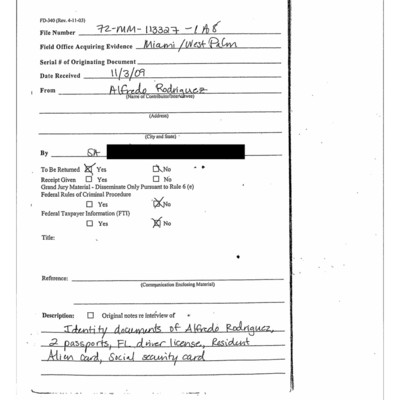 FD-340 (Rev. 4-11-03)
File Number 72-MM-113327-1A8
Field Office Acquiring Evidence Miami/West Palm
Serial # of Originating Document
Date Received 11/3/09
From Alfredo Rodriguez
(Name of Contributor/Interviewee)
(Address)
(City and State)
By SA
To Be Returned Yes No
Receipt Given Yes No
Grand Jury Material - Disseminate Only Pursuant to Rule 6 (e)
Federal Rules of Criminal Procedure
Yes No
Federal Taxpayer Information (FTI)
Yes No
Title:
Reference:
(Communication Enclosing Material)
Description: Original notes re interview of
Identity documents of Alfredo Rodriguez,
2 passports, FL driver license, Resident
Alien Card, Social security card